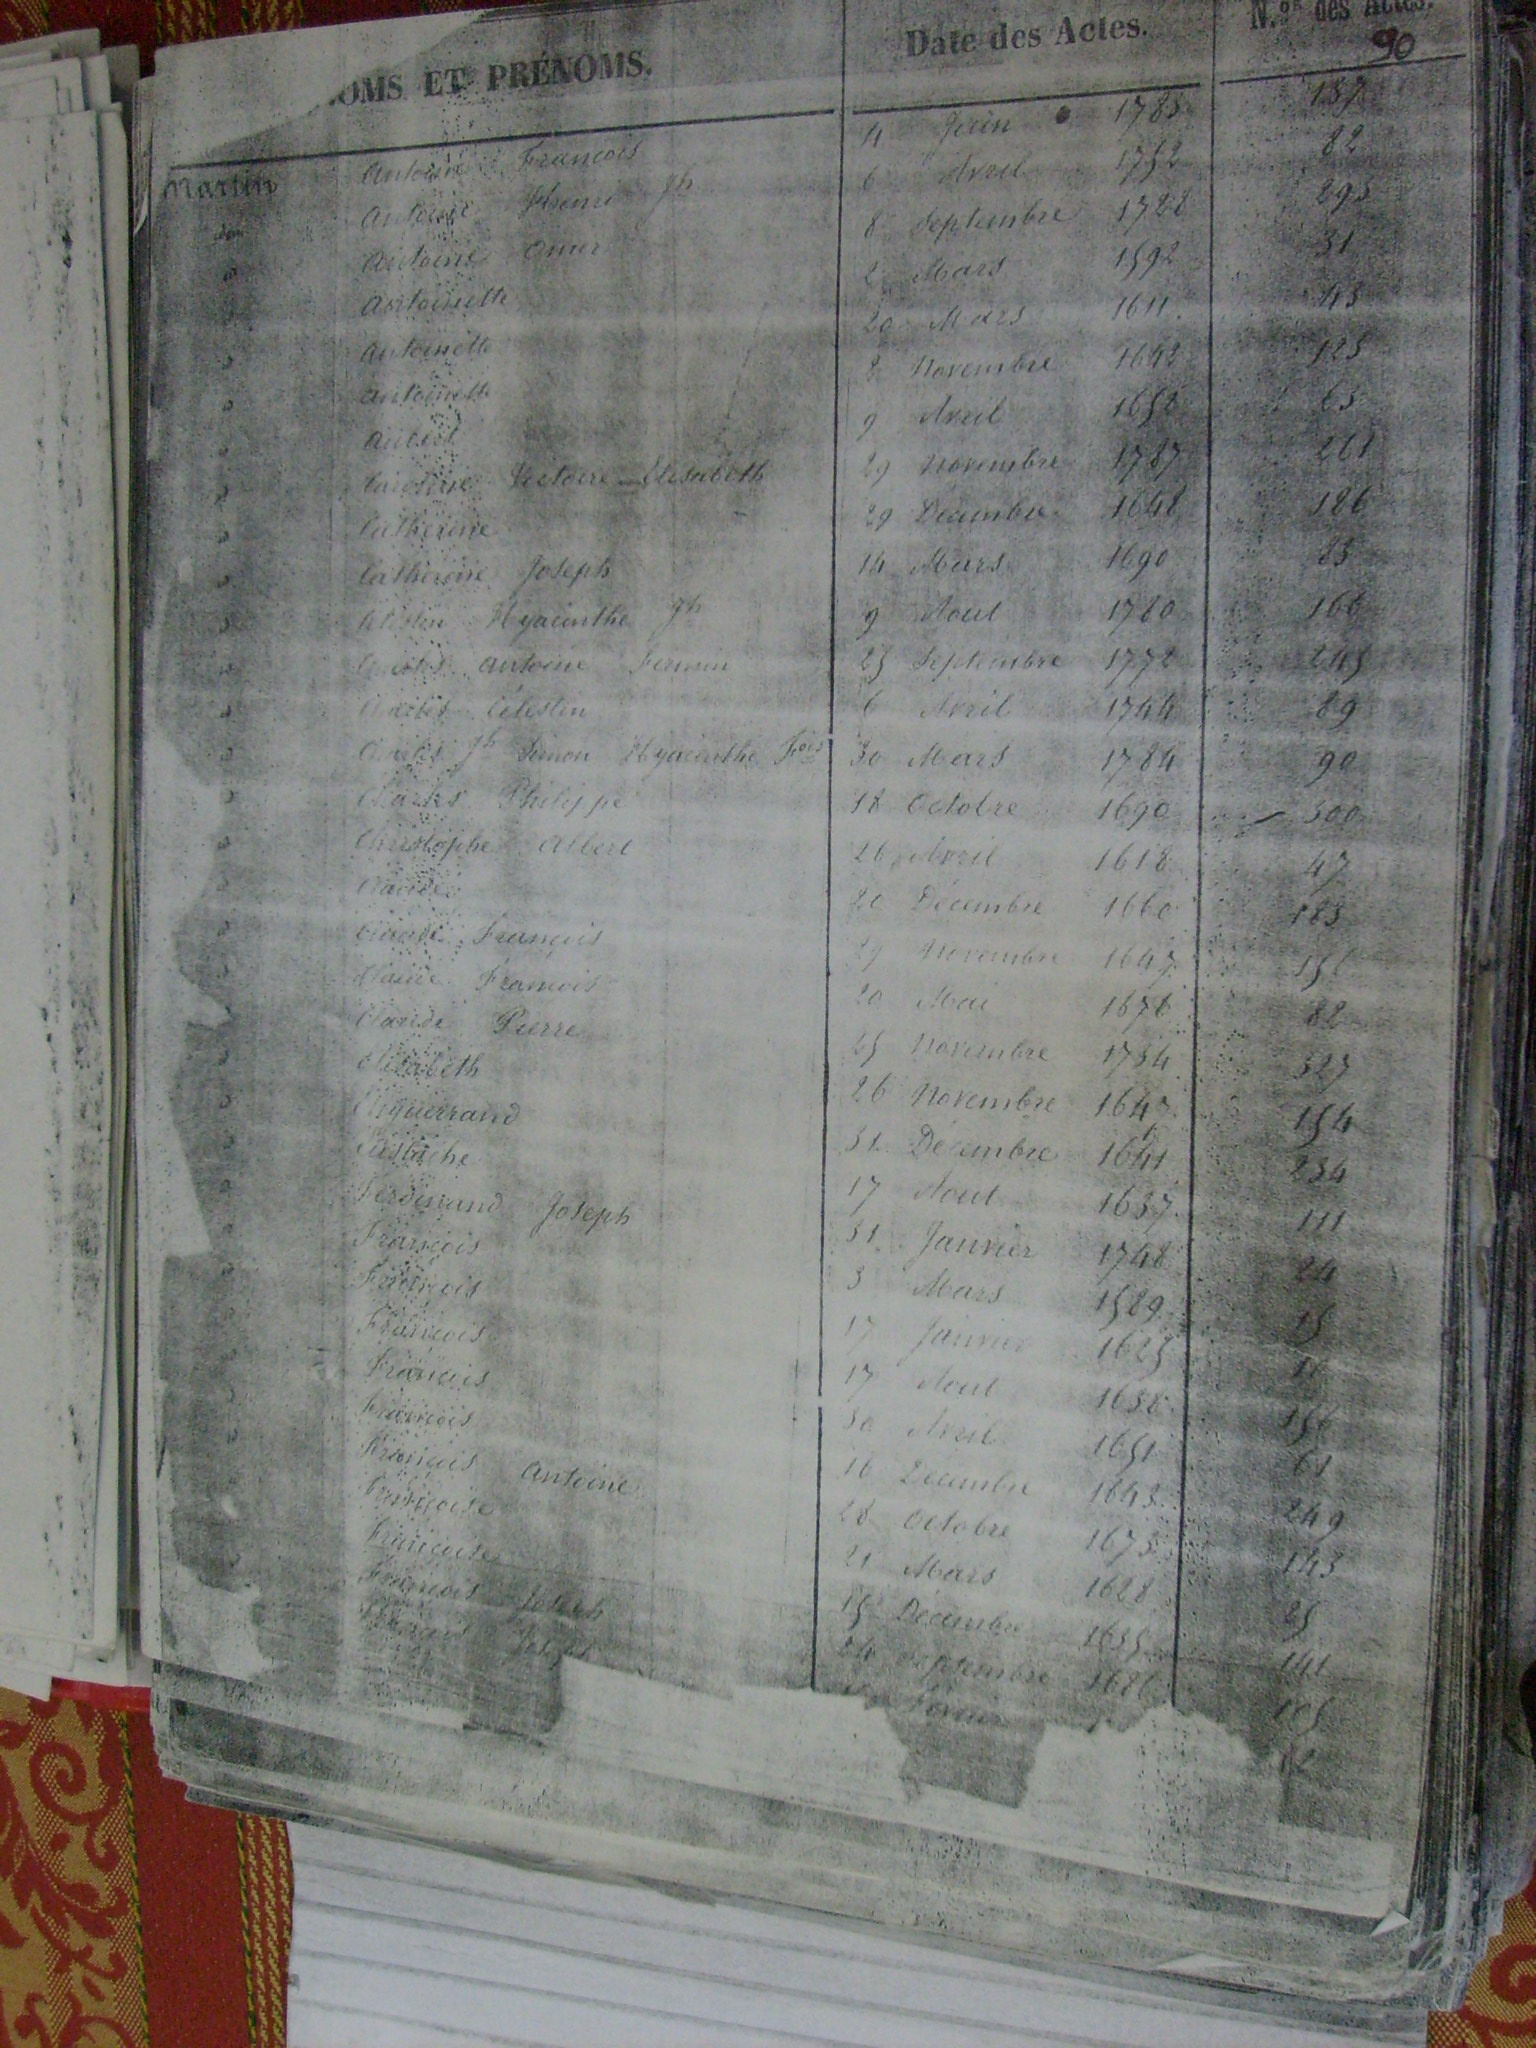 OMS ET PRÉNOMS. Date des Actes. N.os des Actes.
90
Martin Antoine François 14 Juin 1783 137
Antoine Henri Jh 6 Avril 1752 82
Antoine Omer 8 Septembre 1728 293
Antoinette 2 Mars 1592 31
Antoinette 20 Mars 1611. 43
Antoinette 2 Novembre 1642 125
Aubert 9 Avril 1658 63
Caroline Victoire Elisabeth 29 Novembre 1787 261
Catherine 29 Décembre 1648 186
Catherine Joseph 14 Mars 1690 83
Célestin Hyacinthe Jh 9 Aout 1780 166
Charles Antoine Firmin 25 Septembre 1772 245
Charles Célestin 6 Avril 1744 89
Charles Jh Simon Hyacinthe Fois 30 Mars 1784 90
Charles Philippe 18 Octobre 1690 300
Christophe Albert 26 Avril 1618 47
Claude 20 Décembre 1660 183
Claude François 29 Novembre 1647
Claude François 20 Mai 1676 82
Claude Pierre 25 Novembre 1734 327
Elizabeth 26 Novembre 1647 154
Enguerrand 31. Décembre 1641 234
Eustache 17 Aout 1637. 111
Ferdinand Joseph 31. Janvier 1748 24
François 3 Mars 1589 15
François 17 Janvier 1625
François 17 Aout 1638
François 30 Avril 1651 61
François 16 Décembre 1643 249
François Antoine 28 Octobre 1673 143
Françoise 21 Mars 1628 25
Françoise 15 Décembre 1635 141
François Joseph 24 Septembre 1686
François Joseph